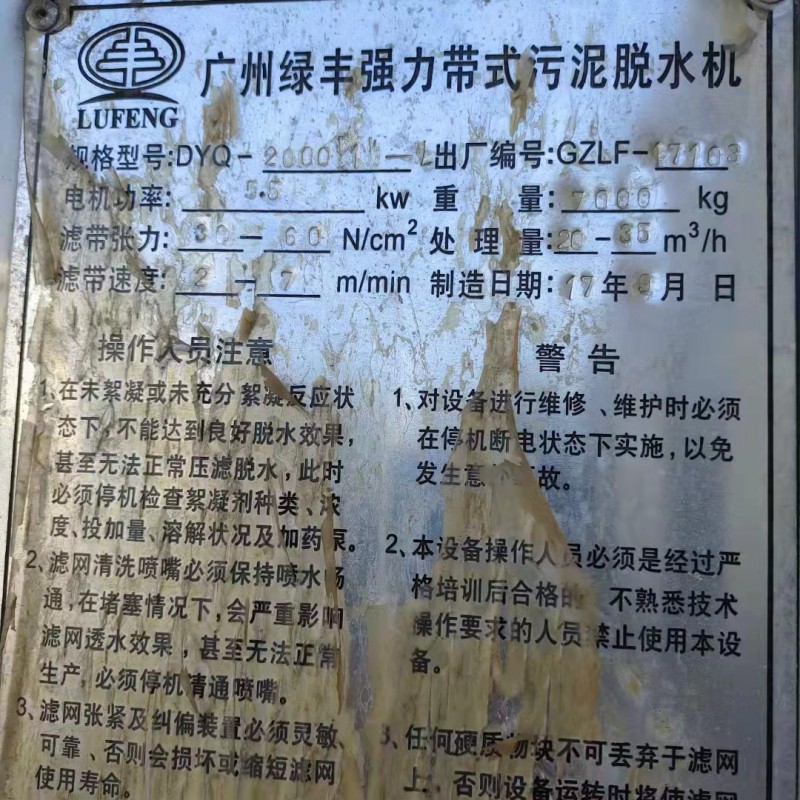 LUFENG
广州绿丰强力带式污泥脱水机
规格型号:DYQ-
出厂编号:GZLF-
电机功率: 5.5 kw
重 量: 7000 kg
滤带张力: 30 — 60 N/cm²
处 理 量: 20 - 35 m³/h
滤带速度: 2 — 7 m/min
制造日期: 17年 月 日
操作人员注意
1、在未絮凝或未充分絮凝反应状
态下,不能达到良好脱水效果,
甚至无法正常压滤脱水,此时
必须停机检查絮凝剂种类、浓
度、投加量、溶解状况及加药泵。
2、滤网清洗喷嘴必须保持喷水畅
通,在堵塞情况下,会严重影响
滤网透水效果,甚至无法正常
生产,必须停机清通喷嘴。
3、滤网张紧及纠偏装置必须灵敏、
可靠、否则会损坏或缩短滤网
使用寿命。
警 告
1、对设备进行维修、维护时必须
在停机断电状态下实施,以免
发生意 故。
2、本设备操作人员必须是经过严
格培训后合格的 不熟悉技术
操作要求的人员禁止使用本设
备。
3、任何硬质物块不可丢弃于滤网
上,否则设备运转时将使滤网